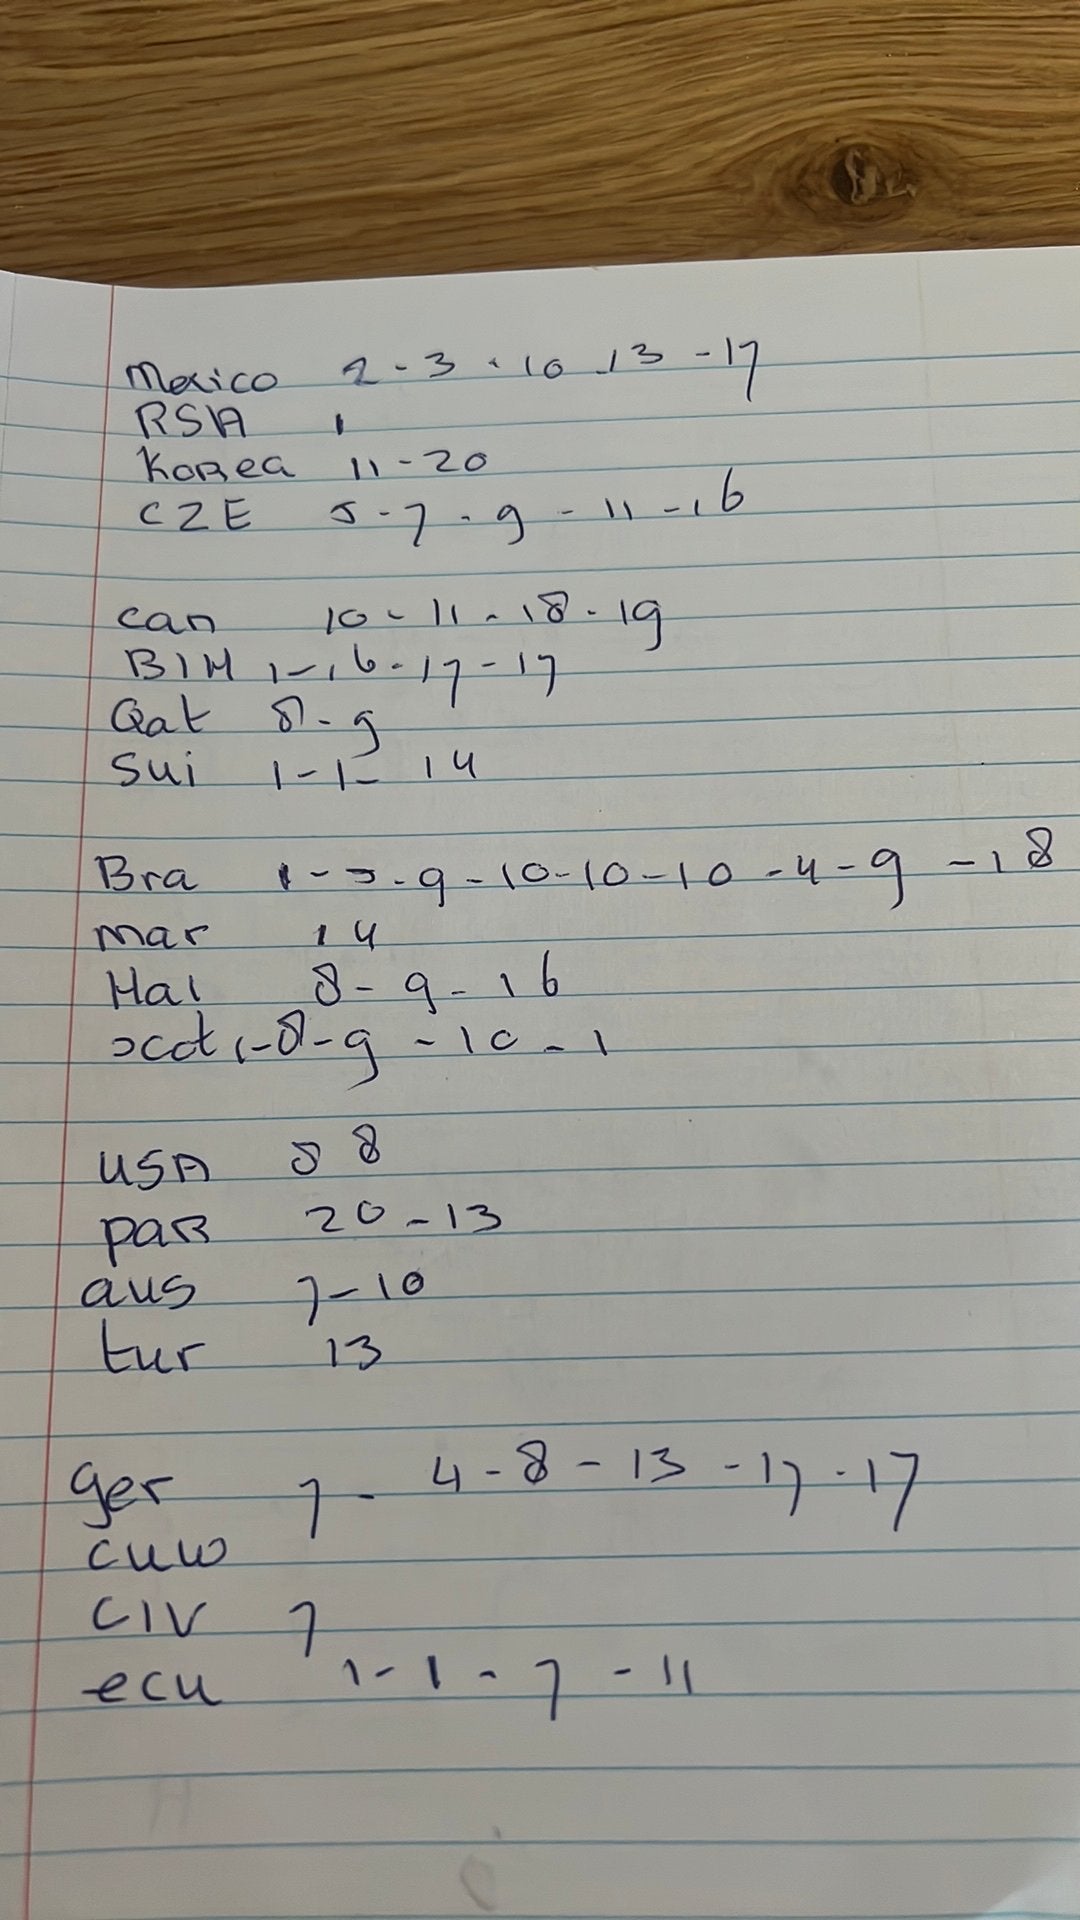 Mexico 2 - 3 - 10 - 13 - 17
RSA 1
Korea 11 - 20
CZE 5 - 7 - 9 - 11 - 16
can 10 - 11 - 18 - 19
BIH 1 - 16 - 17 - 17
Qat 8 - 9
Sui 1 - 1 - 14
Bra 1 - 5 - 9 - 10 - 10 - 10 - 4 - 9 - 18
mar 14
Hai 8 - 9 - 16
scot 1 - 8 - 9 - 10 - 1
USA 8 8
paR 20 - 13
aus 7 - 10
tur 13
ger 7 - 4 - 8 - 13 - 17 - 17
cuw
CIV 7
ecu 1 - 1 - 7 - 11